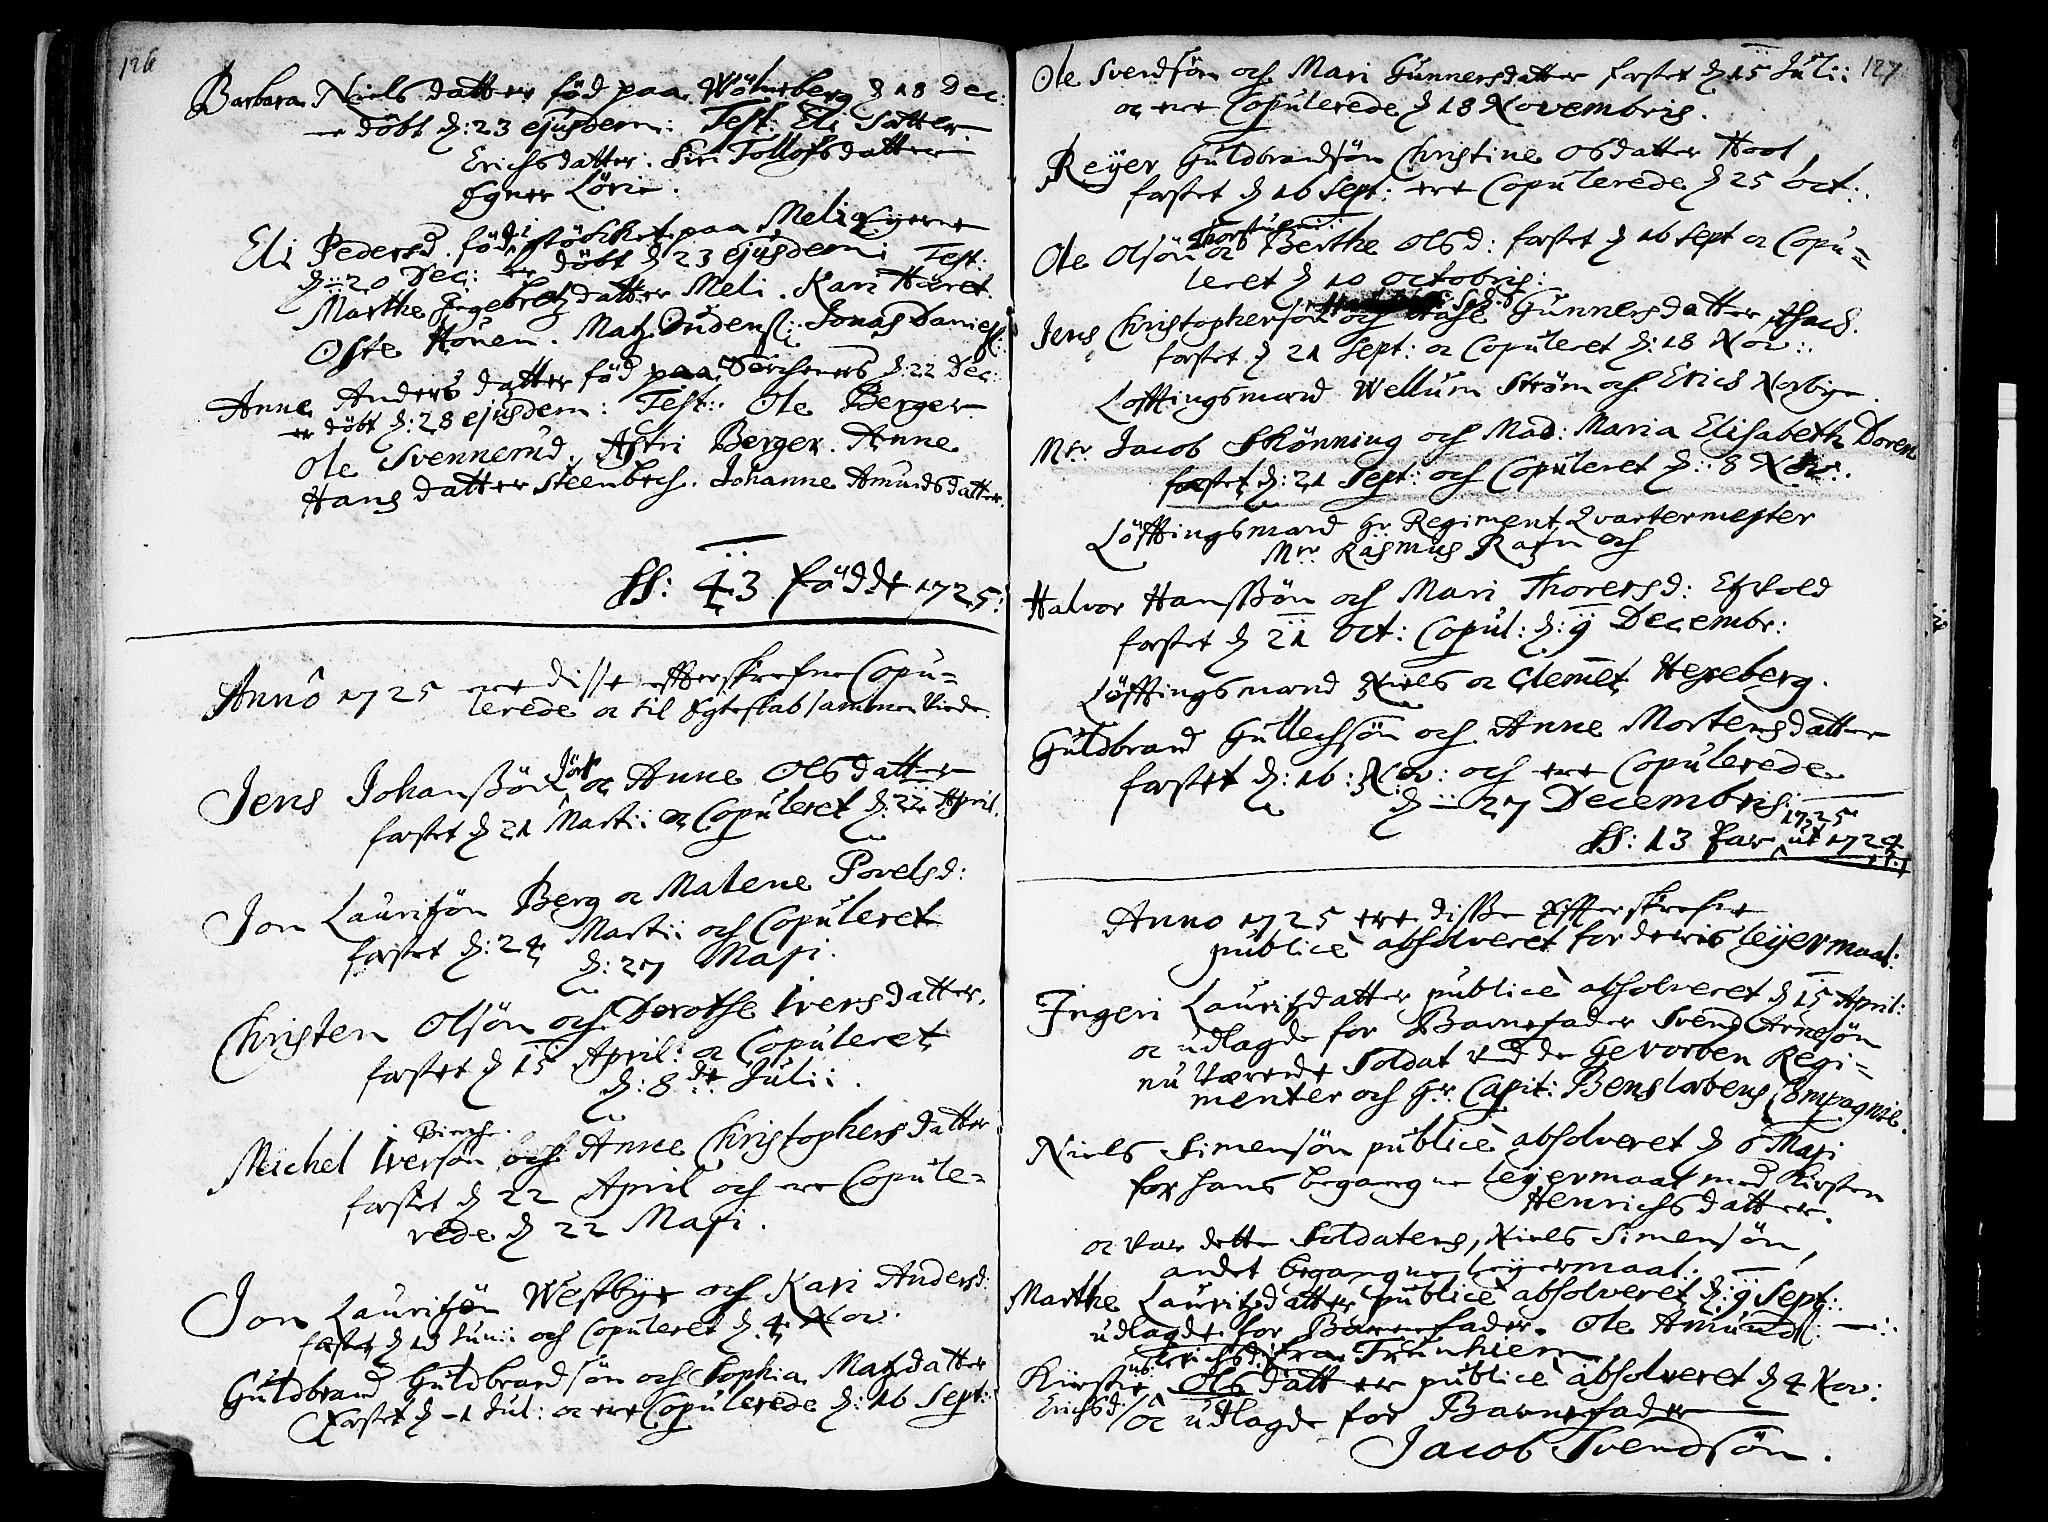 126
Barbara Niels datter föd paa Wölneberg d 18 Dec:
er döbt d: 23 ejusdem: Test: Eli Sätter
Erichsdatter. Siri Tollofsdatter
Egner Lörie.
Eli Pedersd. föd i stöchet paa Melia Eyerne
d: 20 Dec: er döbt d 23 ejusdem: Test:
Marthe Engebretzdatter Meli. Kari Haret.
Oste Honen. Matz Dudens: Jonas Daniels:
Anne Anders datter föd paa d: 22 Dec:
er döbt d: 28 ejusdem: Test: Ole Berger
Ole Svennerud. Astri Berger. Anne
Hans datter Steenbech. Johanne Amundsdatter.
SS: 43 födde 1725:
Anno 1725 ere disse effterskrefne Copu-
lerede oc til Egteskab sammen Viede.
Jens Johanssön oc Anne Olsdatter
fæstet d 21 Marti: oc Copuleret d: 22 April.
Jon Lauritzön Berg oc Malene Povelsd:
fæstet d: 24 Marti: och Copuleret
d: 27 Maji.
Christen Olsön och Dorothe Iversdatter.
fæstet d 15 April: oc Copuleret
d: 8de Julii.
Birche.
Michel Iversön och Anne Christophersdatter
fæstet d 22 April och ere Copule-
rede d 22 Maji.
Jon Lauritzön Westbye och Kari Andersd:
fæstet d 13 Junii och Copuleret d. 4 Nov:
Guldbrand Guldbrandsön och Sophia Matzdatter
Fæstet d -1 Jul: oc ere Copulerede d: 16 Sept:
127
Ole Svendsön och Mari Gunnersdatter fæstet d 15 Julii
oc ere Copulerede d 18 Novembris.
Reyer Guldbrandsön Christine Osdatter Hool,
fæstet d 16 Sept: ere Copulerede d 25 Oct:
Ole Olsön oc Berthe Olsd: fæstet d 16 Sept oc Copu-
leret d 10 Octobris:
Jens Christophersön och Aase Gunnersdatter
fæstet d 21 Sept: oc Copuleret d: 18 Nov:
Lofftingsmænd Wellum Ström och Erich Norbye.
Mr. Jacob Skönning och Mad: Maria Elisabeth Doren
fæstet d: 21 Sept: och Copuleret d: 8 Nov:
Löfftingsmænd Hr Regiment Qvartermester
Mr. Rasmus Rafn och
Halvor Hanssön och Mari Thoresd:
fæstet d 21 Oct: Copul: d: 9 Decembr:
Löfftingsmænd Niels oc Clemmet Hereberg.
Guldbrand Gullechsön och Anne Mortensdatter
fæstet d: 16: Nov: och ere Copulerede
d 27 Decembris.
1725
SS: 13 Par ut 1724
Anno 1725 ere disse Effterskrefne
publicè absolveret for deris leyermaal:
Ingeri Lauritzdatter publicè absolveret d 15 April:
oc udlagde for Barnefader Svend Arnesön
nu Værende Soldat ved de Gevorben Regi-
menter och Hr. Capit: Benstorbens Compagnie.
Niels Simensön publicè absolveret d 6 Maji
for hans begangne leyermaal med Kirsten
Henrichsdatter.
oc Var dette Soldatens, Niels Simensön,
andet begangne leyermaal:
Marthe Lauritzdatter publicè absolveret d: 9 Sept:
udlagde for Barnefader. Ole Amunds:
fra Trunhiem
Kirstie Olsdatter publicè absolveret d 4 Nov:
Erichsd: / oc udlagde for Barnefader
Jacob Svendsön.